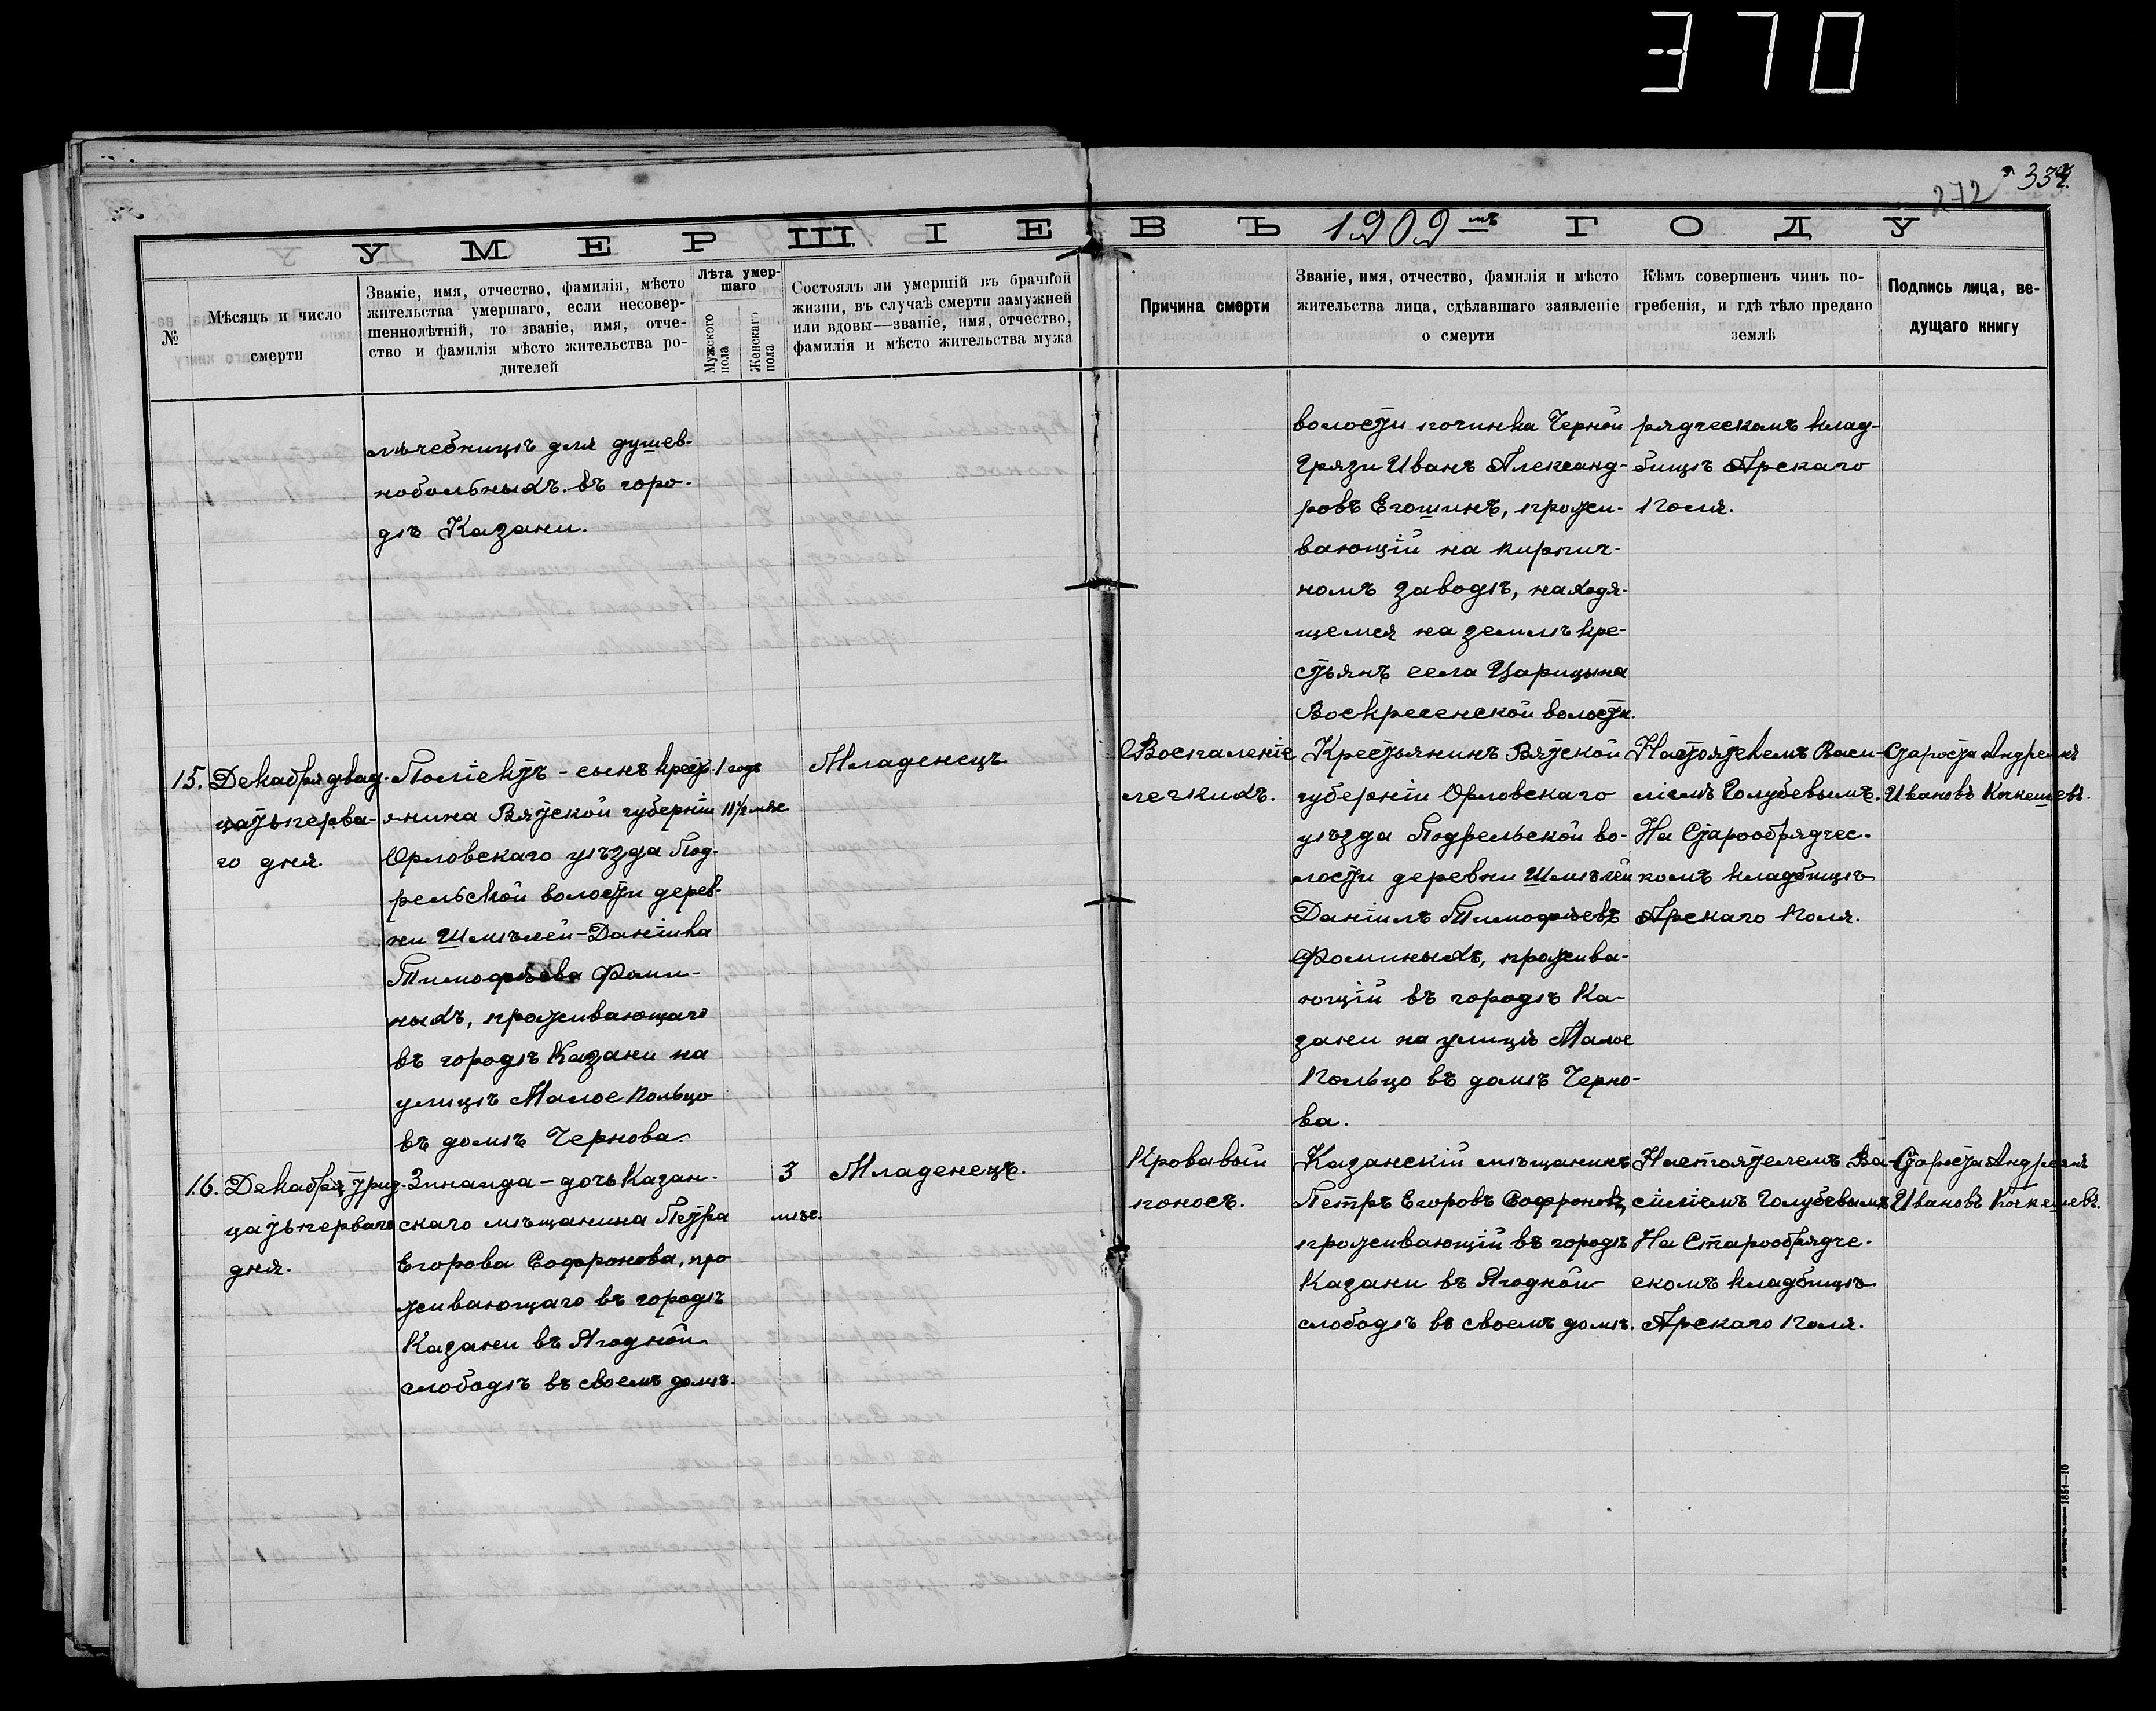 370
272
УМЕРШІЕ ВЪ 1909мъ ГОДУ
№
Мѣсяцъ и число
смерти
Званіе, имя, отчество, фамилія, мѣсто
жительства умершаго, если несовер-
шеннолѣтній, то званіе, имя, отче-
ство и фамилія мѣсто жительства ро-
дителей
Лѣта умер-
шаго
Мужского
пола
Женскаго
пола
Состоялъ ли умершій въ брачной
жизни, въ случаѣ смерти замужней
или вдовы—званіе, имя, отчество,
фамилія и мѣсто жительства мужа
Причина смерти
Званіе, имя, отчество, фамилія и мѣсто
жительства лица, сдѣлавшаго заявленіе
о смерти
Кѣмъ совершенъ чинъ по-
гребенія, и гдѣ тѣло предано
землѣ
Подпись лица, ве-
дущаго книгу
лѣчебницѣ для душев-
нобольныхъ въ горо-
дѣ Казани.
волости починка Черной
Грязи Иванъ Александ-
ровъ Егошинъ, прожи-
вающій на кирпич-
номъ заводѣ, находя-
щемся на землѣ кре-
стьянъ села Царицына
Воскресенской волости.
рядческомъ клад-
бищѣ Арскаго
поля.
15.
Декабря двад-
цать перва-
го дня.
Поліектъ - сынъ крест-
янина Вятской губерніи
Орловскаго уѣзда Под-
рельской волости дерев-
ни Шмѣлей - Даніила
Тимофѣева Фоми-
ныхъ, проживающаго
въ городѣ Казани на
улицѣ Малое Кольцо
въ домѣ Чернова.
1 годъ
11½ мѣс
Младенецъ.
Воспаленіе
легкихъ.
Крестьянинъ Вятской
губерніи Орловскаго
уѣзда Подрельской во-
лости деревни Шмѣлей
Даніилъ Тимофѣевъ
Фоминыхъ, прожива-
ющій въ городѣ Ка-
зани на улицѣ Малое
Кольцо въ домѣ Черно-
ва.
Настоятелемъ Васи-
ліемъ Голубевымъ.
На Старообрядчес-
комъ кладбищѣ
Арскаго поля.
Староста Андреянъ
Ивановъ
16.
Декабря трид-
цать перваго
дня.
Зинаида - дочь Казан-
скаго мѣщанина Петра
Егорова Софронова, про
живающаго въ городѣ
Казани въ Ягодной
слободѣ въ своемъ домѣ.
3
мѣс.
Младенецъ.
Кровавый
поносъ.
Казанскій мѣщанинъ
Петръ Егоровъ Софроновъ,
проживающій въ городѣ
Казани въ Ягодной
слободѣ въ своемъ домѣ.
Настоятелемъ Ва-
силіемъ Голубевымъ
На Старообрядче-
скомъ кладбищѣ
Арскаго поля.
Староста Андреянъ
Ивановъ